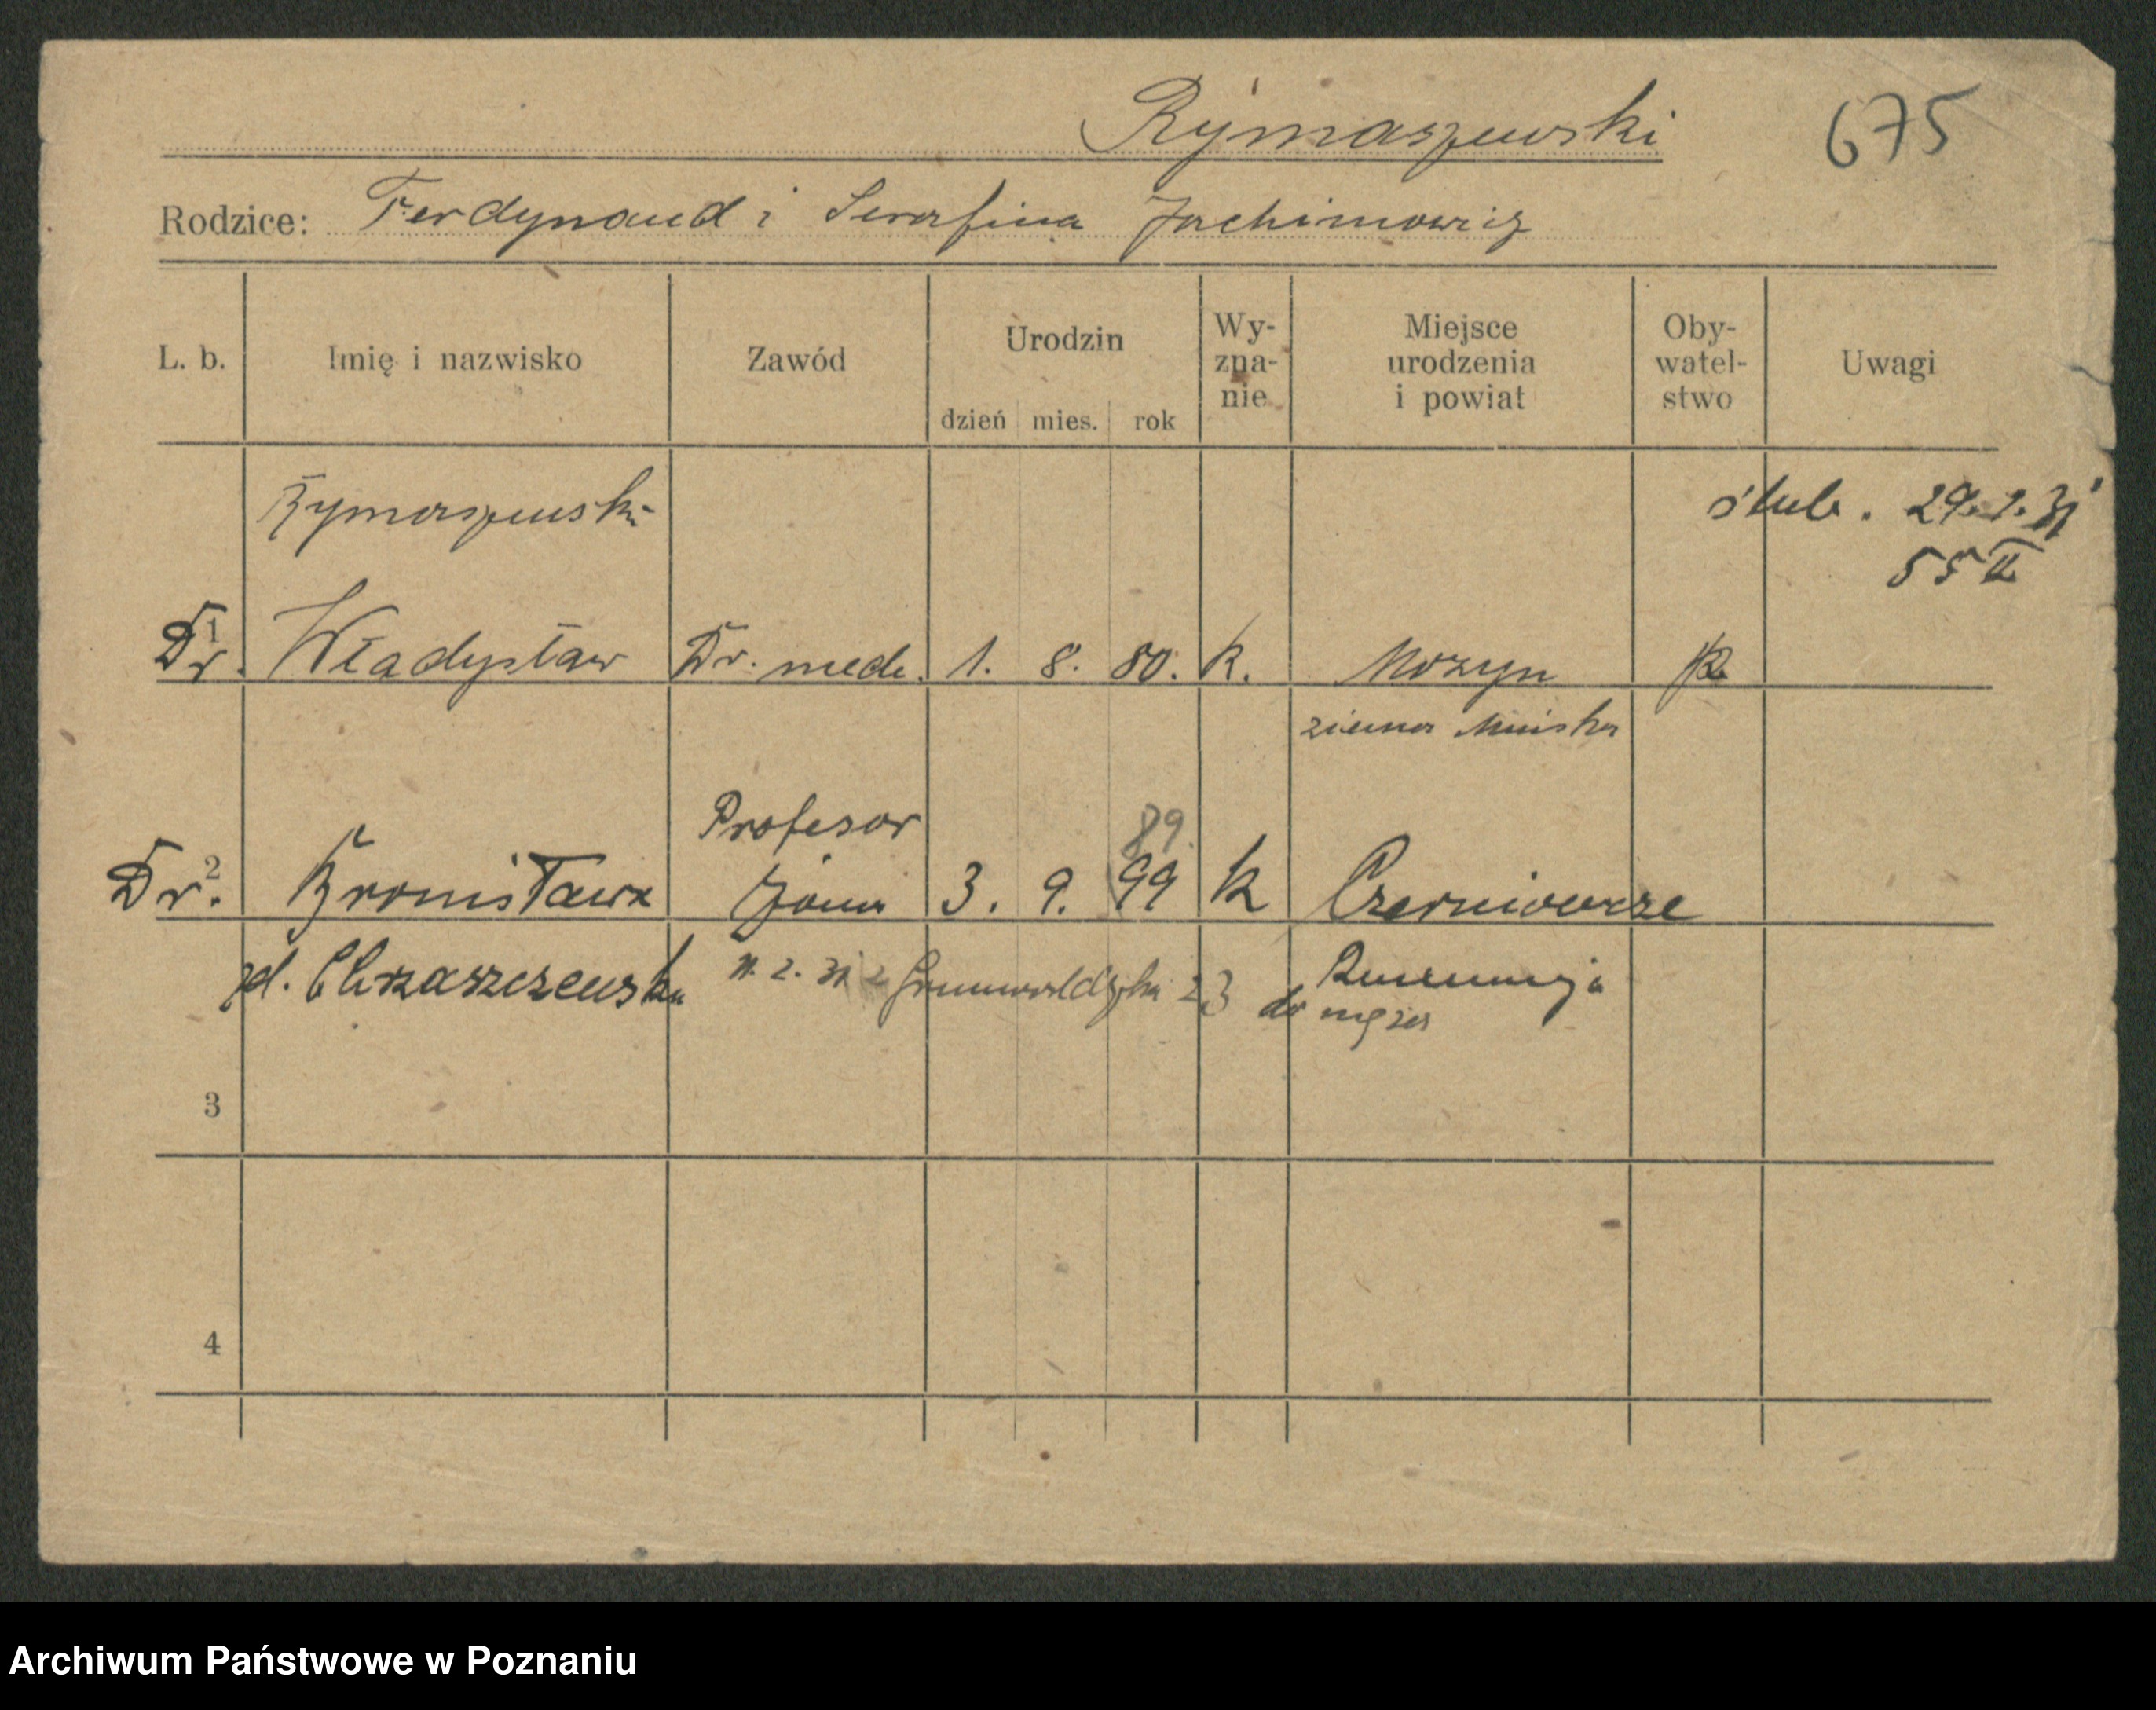 Rymaszewski 675
Rodzice: Ferdynand i Serafina Jachimowicz
L. b. Imię i nazwisko Zawód Urodzin dzień mies. rok Wy-zna-nie Miejsce urodzenia i powiat Oby-watel-stwo Uwagi
Rymaszewski ślub. 29.1.31
55 II
Dr. 1 Władysław Dr. med. 1. 8. 80. k. Mozyn
ziemia Mińska
Profesor 89.
Dr. 2 Bronisława żona 3. 9. 99 k Czerniowce
zd. Chrzaszczewska 11. 2. 31 z Grunwaldzka 23 do męża Rumunja
3
4
Archiwum Państwowe w Poznaniu